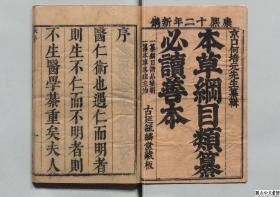 康熙十二年新鐫
京口何培元先生纂輯
本草綱目類纂
必讀善本
古延毓麟堂藏板
序
醫仁術也過仁而明者
則生不仁而不明者則
不生醫學綦重矣夫人